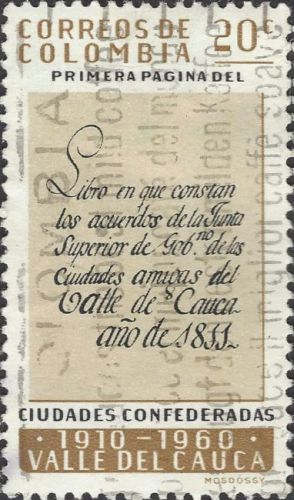 CORREOS DE COLOMBIA 20c
PRIMERA PAGINA DEL
Libro en que constan
los acuerdos de la Junta
Superior de Gob.no de las
Ciudades amigas del
Valle de Cauca
año de 1811
CIUDADES CONFEDERADAS
1910-1960
VALLE DEL CAUCA
MOSDOSSY